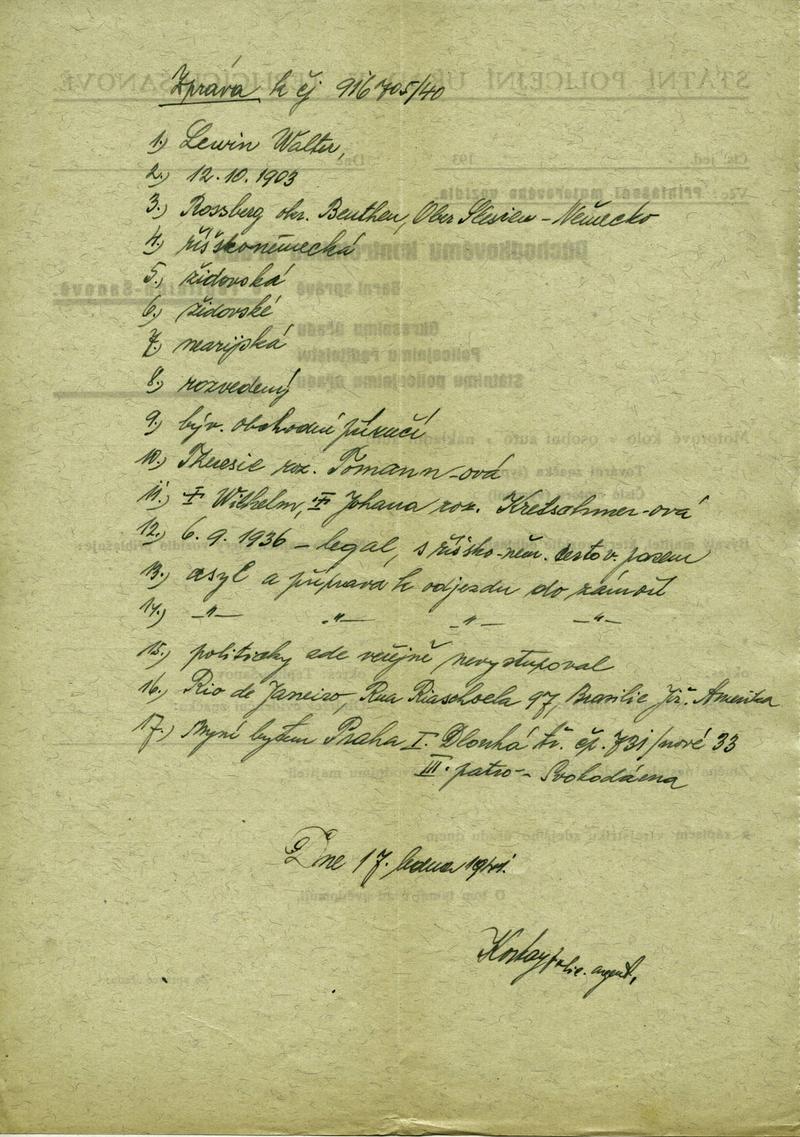 Zpráva k čj 916705/40
1.) Lewin Walter,
2.) 12.10.1903
3.) Rossberg okr. Beuthen, Ober Slesien - Německo
4.) říškoněmecká
5.) židovská
6.) židovské
7.) nearijská
8.) rozvedený
9.) býv. obchodní příručí
10.) Theresie roz. Tomann-ová
11.) Wilhelm, Johana roz. Kretschmer-ová
12.) 6.9.1936 - legal, s říšsko-něm. cestov. pasem
13.) asyl a příprava k odjezdu do zámoří
14.) -"- -"- -"- -"-
15.) politicky ade veřejně nevystupoval
16.) Rio de Janeiro, Rua Riaschoela 97, Brasilie Již. Amerika
17.) Nyní bytem Praha I. Dlouhá tř. čp. 731/nové 33
III. patro - Svobodárna
Dne 17. ledna 1941.
polic. agent,
STÁTNÍ POLICEJNÍ
Čís. jed.
193
Dne
Věc: Přihlášení motorového vozidla
Důchodkovému kontrolnímu
Berní správě
Okresnímu úřadu
Policejnímu ředitelství
Státnímu policejnímu úřadu
Motorové kolo - osobní auto